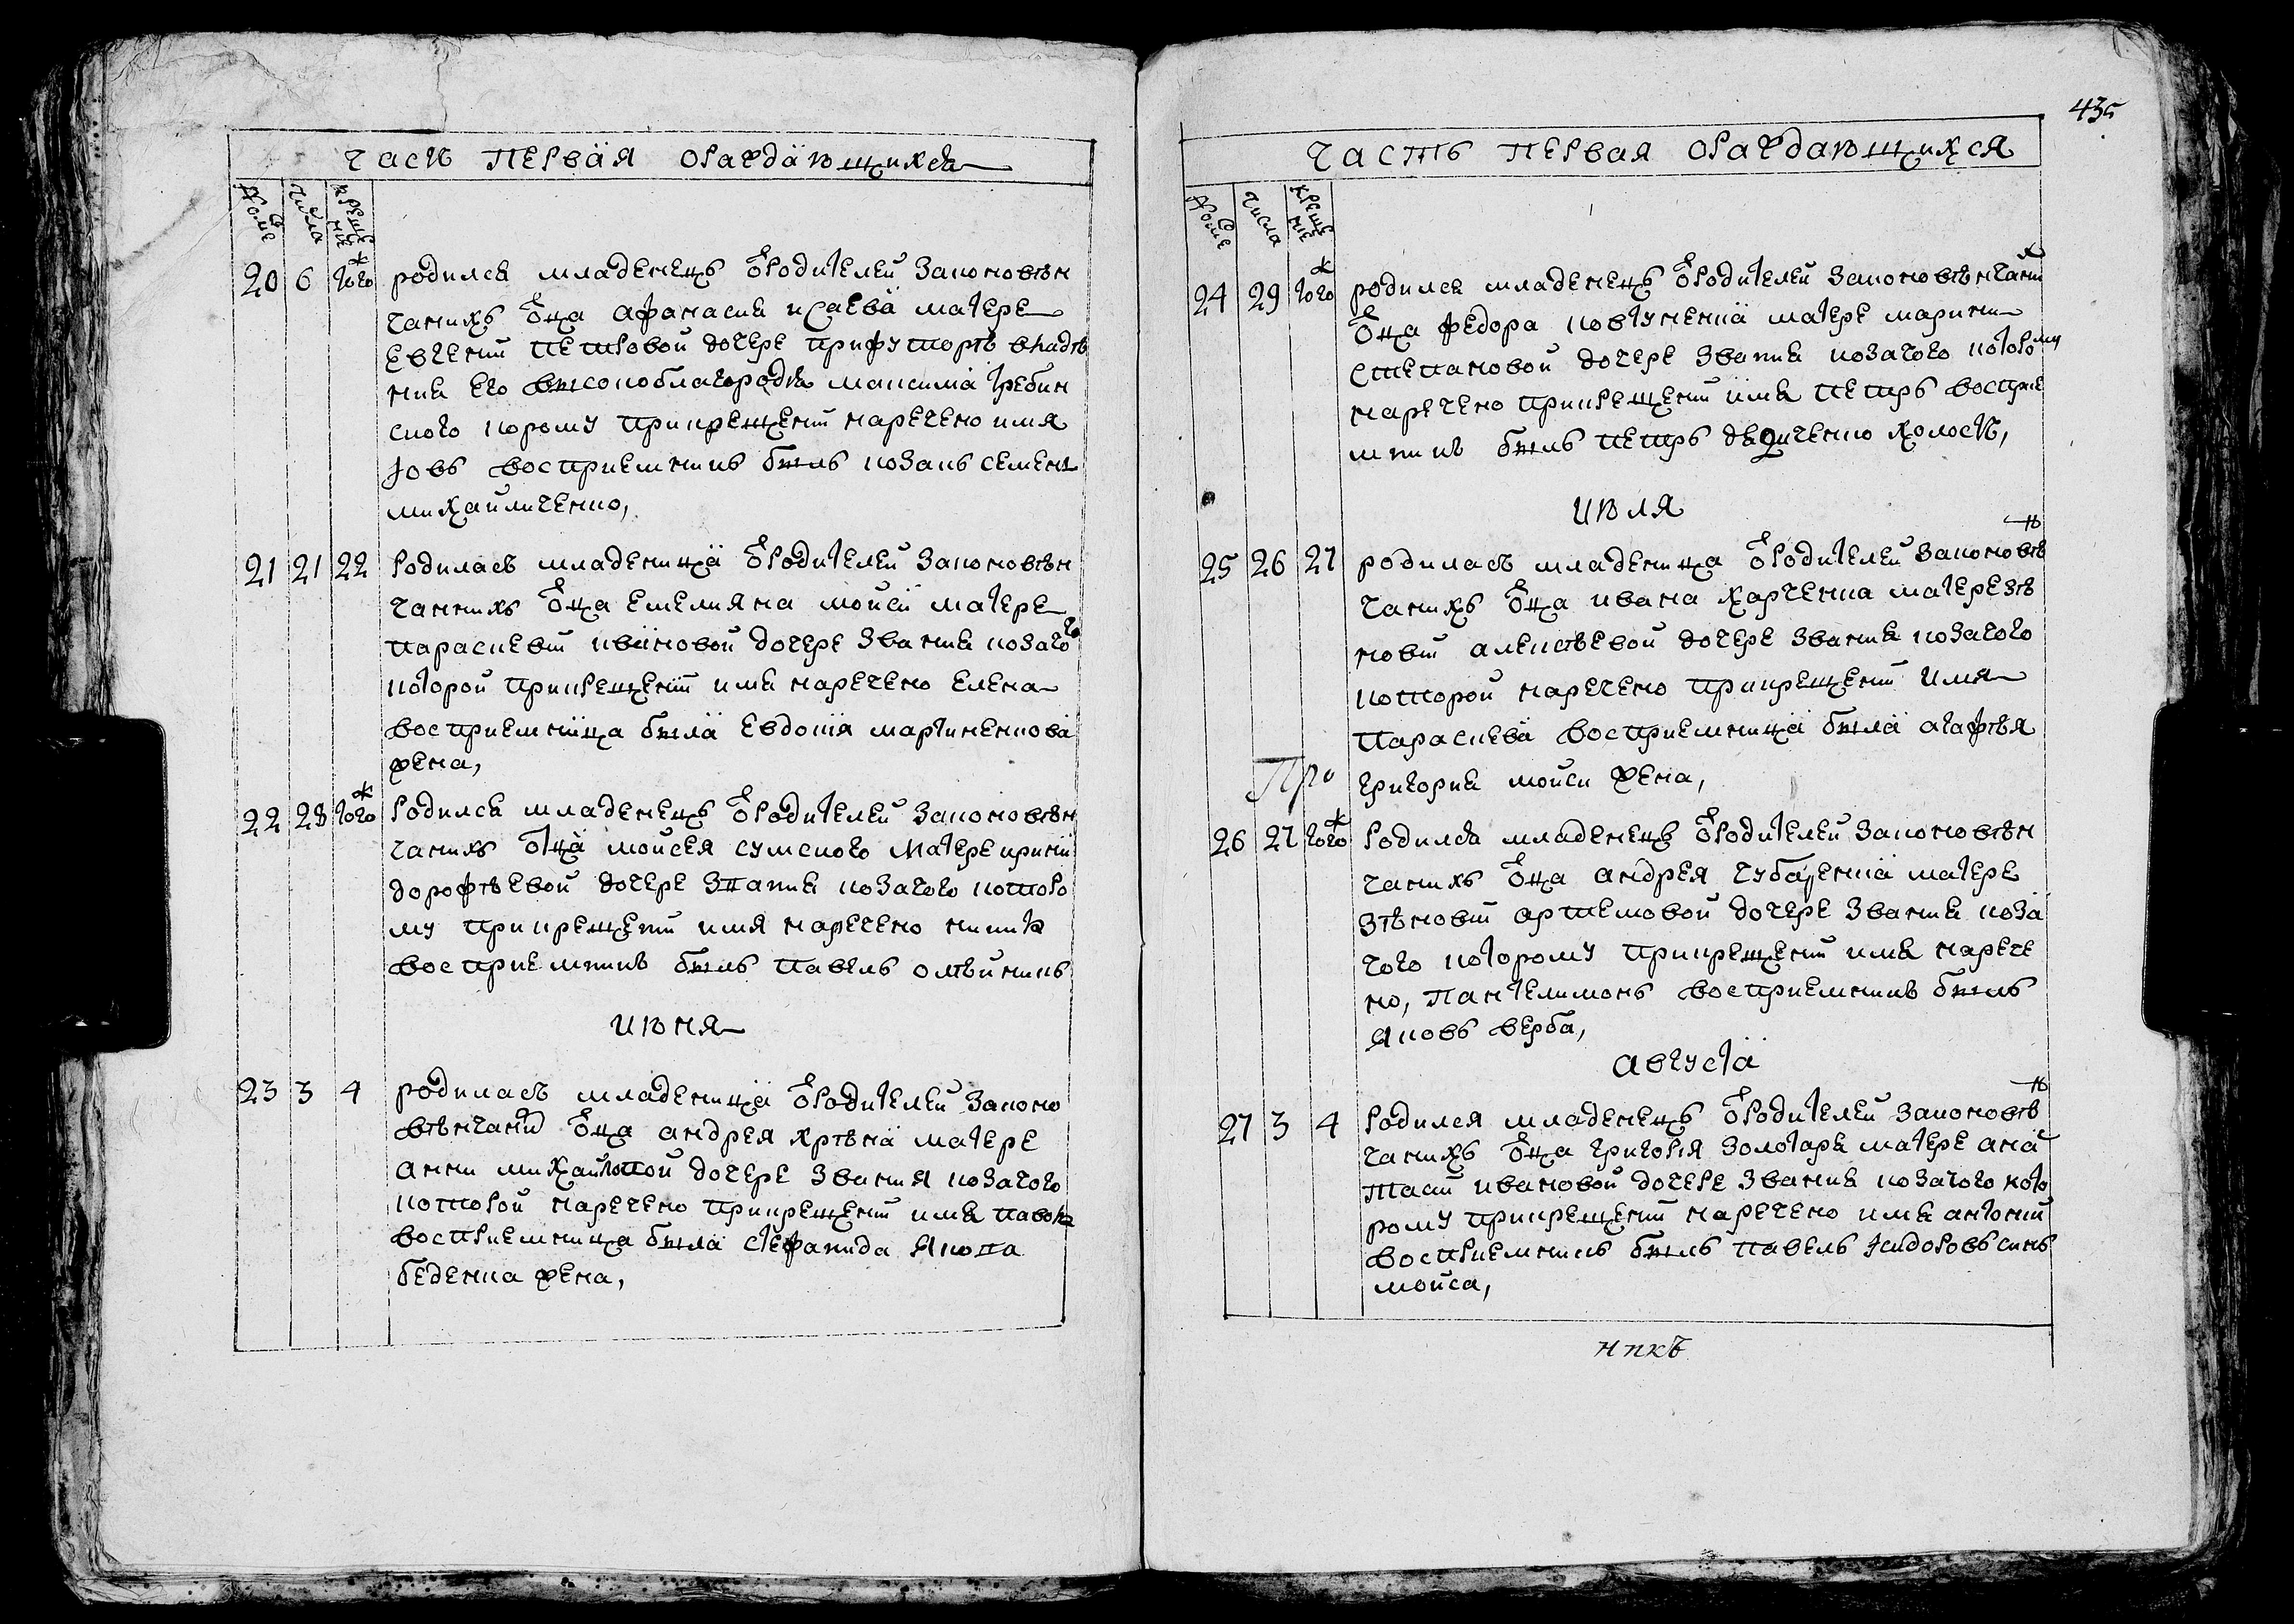 часть первая ораждающихся
№оме
числа
креще
ние
20 6 тогож родился младенецъ ѿродителей законовѣн
чаннихъ ѿца афанасия исаева матере
евгении петровой дочере прифуторѣ владѣ
ния его високоблагородия максима гребин
ского кором у прикрещении наречено имя
Іовъ восприемникъ былъ козакъ семенъ
михайличенко,
21 21 22 родилась младеница ѿродителей законовѣн
чаннихъ ѿца емелияна мойси матере
параскевии ивановой дочере звания козачого
которой прикрещении имя наречено елена
восприемница была евдокия мартиненкова
жена,
22 28 тогож родился младенецъ ѿродителей законовѣн
чаннихъ ѿца мойсея сумского матере ирини
дорофѣевой дочере звания козачого которо
му прикрещении имя наречено никита
восприемникъ былъ павелъ олѣйникъ
июня
23 3 4 родилась младеница ѿродителей законо
вѣнчаних ѿца андрея хрѣна матере
анни михайловой дочере звания козачого
которой наречено прикрещении имя
восприемница была стефанида якова
беденка жена,
435
часть первая ораждающихся
№оме
числа
креще
ние
24 29 тогож родился младенецъ ѿродителей законовѣнчаних
ѿца федора матере марини
степановой дочере звания козачого которому
наречено прикрещении имя петръ восприе
мникъ былъ петръ холость,
июля
25 26 27 родилась младеница ѿродителей законовѣн
чанихъ ѿца ивана харченка матере зѣ
новии алексѣевой дочере звания козачого
которой наречено прикрещении имя
параскева восприемница была агафѣя
Про григория мойси жена,
26 27 тогож родился младенецъ ѿродителей законовѣн
чанихъ ѿца андрея губаренка матере
зѣновии артемовой дочере звания коза
чого которому прикрещении имя нарече
но, пантелимонъ восприемникъ былъ
яковъ верба,
августа
27 3 4 родился младенецъ ѿродителей законовѣн
чанихъ ѿца григория золотаря матере ана
таси ивановой дочере звания козачого кото
рому прикрещении наречено имя антоний
восприемникъ былъ павелъ Ісидоровъ синъ
мойса,